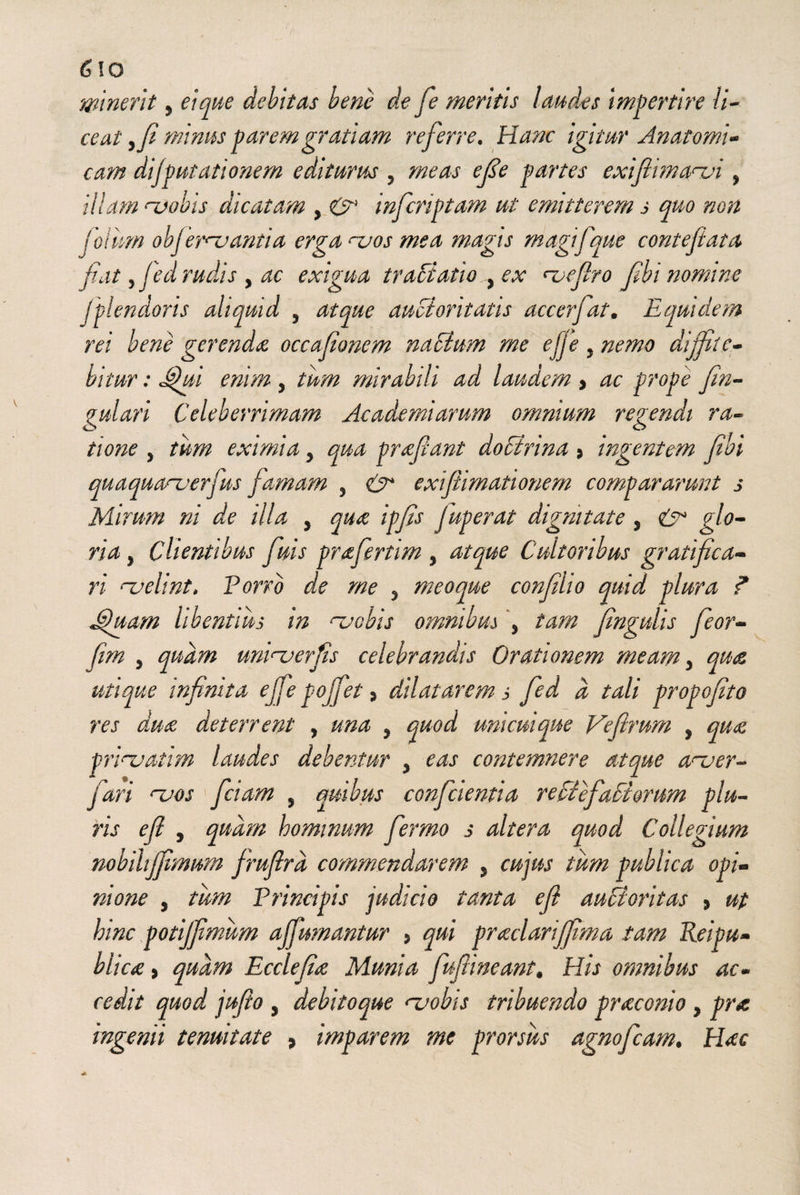 610
minerit, eique debitas benè de se meritis laudes impertire li-
ceat, si minus parem gratiam referre. Hanc igitur Anatomi-
cam disputationem editurus, meas esse partes existimavi,
illam vobis dicatam, & inscriptam ut emitterem; quo non
solùm observantia erga vos mea magis magisque contestata
fiat, sed rudis, ac exigua tractatio, ex vestro sibi nomine
splendoris aliquid, atque auctoritatis accersat. Equidem
rei benè gerendæ occasionem nactum me esse, nemo diffite-
bitur: Qui enim, tùm mirabili ad laudem, ac propè sin-
gulari Celeberrimam Academiarum omnium regendi ra-
tione, tùm eximia, qua præstant doctrina, ingentem sibi
quaquaversus famam, & existimationem compararunt;
Mirum ni de illa, quæ ipsis superat dignitate, & glo-
ria, Clientibus suis præsertim, atque Cultoribus gratifica-
ri velint. Porrò de me, meoque consilio quid plura?
Quam libentiùs in vobis omnibus, tam singulis seor-
sim, quàm universis celebrandis Orationem meam, quæ
utique infinita esse posset, dilatarem; sed à tali proposito
res duæ deterrent, una, quod unicuique Vestrum, quæ
privatim laudes debentur, eas contemnere atque aver-
sari vos sciam, quibus conscientia rectèfactorum plu-
ris est, quàm hominum sermo; altera quod Collegium
nobilissimum frustrà commendarem, cujus tùm publica opi-
nione, tùm Principis judicio tanta est auctoritas, ut
hinc potissimùm assumantur, qui præclarissima tam Reipu-
blicæ, quàm Ecclesiæ Munia sustineant. His omnibus ac-
cedit quod justo, debitoque vobis tribuendo præconio, præ
ingenii tenuitate, imparem me prorsùs agnoscam. Hæc